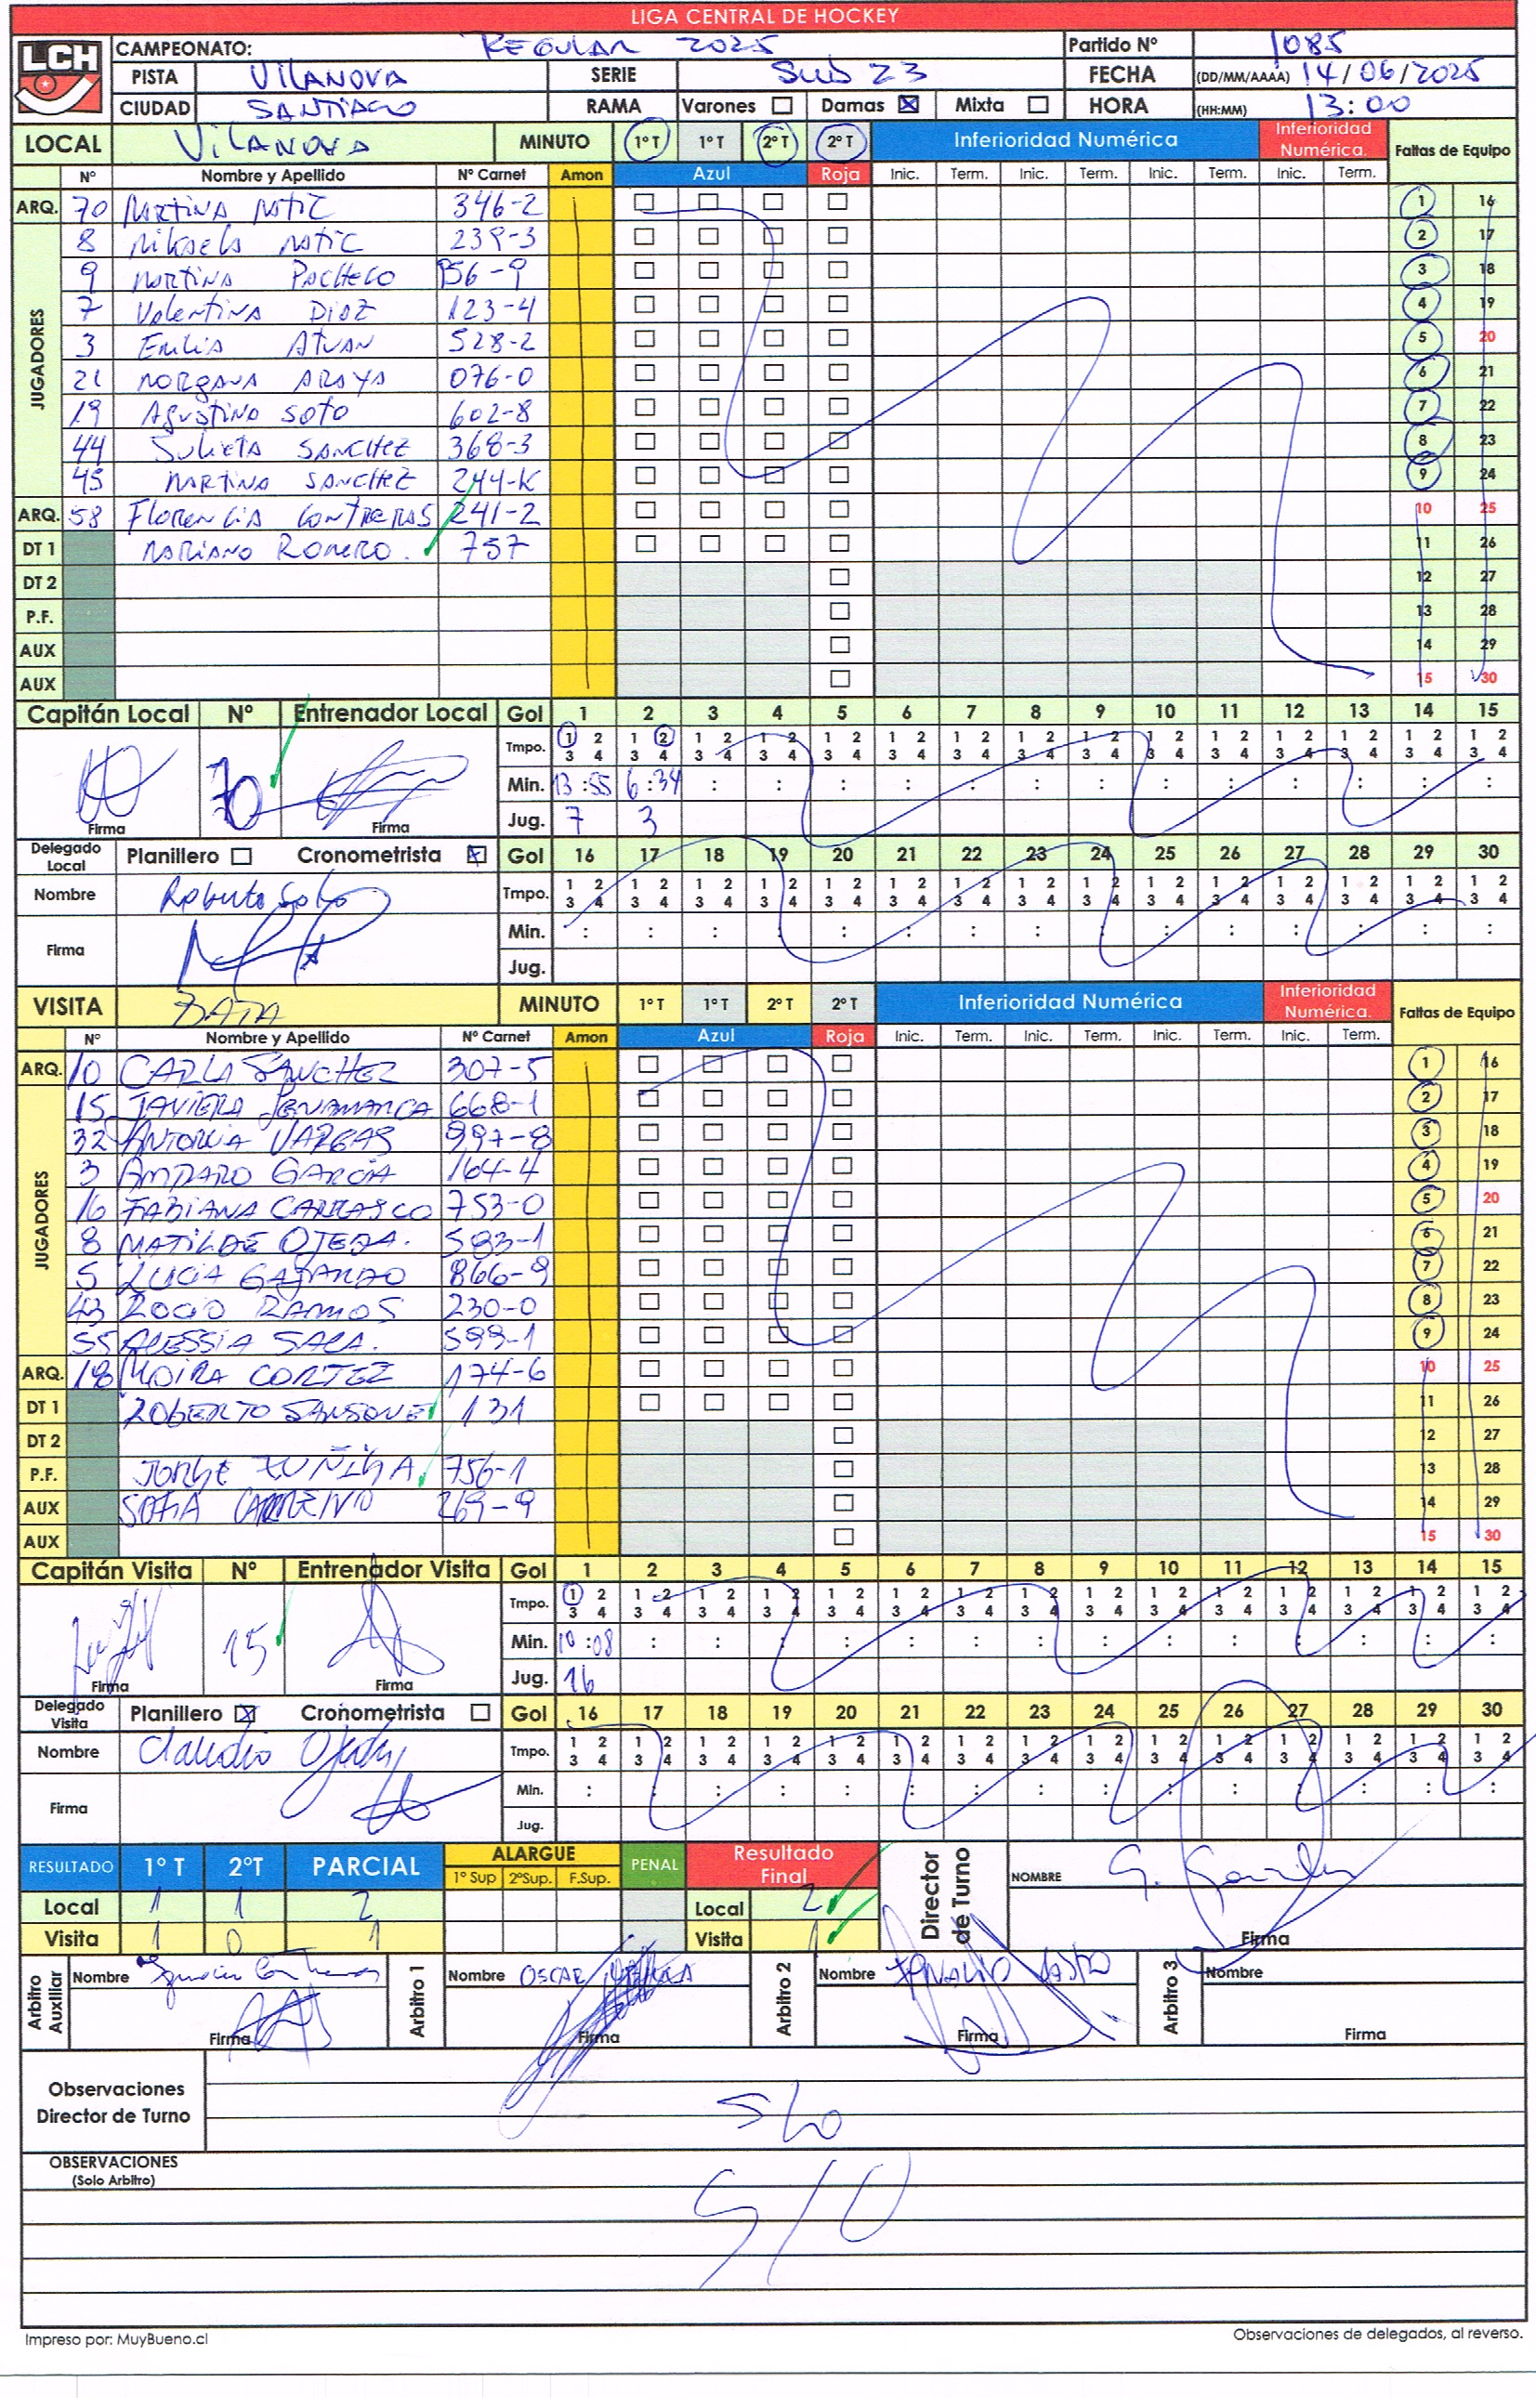 LIGA CENTRAL DE HOCKEY
LCH
CAMPEONATO: REGULAR 2025 Partido Nº 1085
PISTA VILANOVA SERIE SUB 23 FECHA (DD/MM/AAAA) 14/06/2025
CIUDAD SANTIAGO RAMA Varones Damas Mixta HORA (HH:MM) 13:00
LOCAL VILANOVA MINUTO 1º T 1º T 2º T 2º T Inferioridad Numérica Inferioridad Numérica. Faltas de Equipo
Nº Nombre y Apellido Nº Carnet Amon Azul Roja Inic. Term. Inic. Term. Inic. Term. Inic. Term.
JUGADORES
ARQ. 70 Martina Matic 346-2 1 16
8 Mikaela Matic 239-3 2 17
9 Martina Pacheco 956-9 3 18
7 Valentina Diaz 123-4 4 19
3 Emilia Atuan 528-2 5 20
21 Morgana Araya 076-0 6 21
19 Agustina Soto 602-8 7 22
44 Julieta Sanchez 368-3 8 23
45 Martina Sanchez 244-K 9 24
ARQ. 58 Florencia Contreras 241-2 10 25
DT 1 Mariano Romero. 757 11 26
DT 2 12 27
P.F. 13 28
AUX 14 29
AUX 15 30
Capitán Local Nº Entrenador Local Gol 1 2 3 4 5 6 7 8 9 10 11 12 13 14 15
Tmpo. 1 2 1 2 1 2 1 2 1 2 1 2 1 2 1 2 1 2 1 2 1 2 1 2 1 2 1 2 1 2
3 4 3 4 3 4 3 4 3 4 3 4 3 4 3 4 3 4 3 4 3 4 3 4 3 4 3 4 3 4
70 Min. 13:55 6:34 : : : : : : : : : : : : :
Firma Firma Jug. 7 3
Delegado Local Planillero Cronometrista Gol 16 17 18 19 20 21 22 23 24 25 26 27 28 29 30
Nombre Roberto Soto Tmpo. 1 2 1 2 1 2 1 2 1 2 1 2 1 2 1 2 1 2 1 2 1 2 1 2 1 2 1 2 1 2
3 4 3 4 3 4 3 4 3 4 3 4 3 4 3 4 3 4 3 4 3 4 3 4 3 4 3 4 3 4
Firma Min. : : : : : : : : : : : : : : :
Jug.
VISITA BATA MINUTO 1º T 1º T 2º T 2º T Inferioridad Numérica Inferioridad Numérica. Faltas de Equipo
Nº Nombre y Apellido Nº Carnet Amon Azul Roja Inic. Term. Inic. Term. Inic. Term. Inic. Term.
JUGADORES
ARQ. 10 CARLA SANCHEZ 307-5 1 16
15 JAVIERA PEÑAMARCA 668-1 2 17
32 ANTONIA VARGAS 997-8 3 18
3 AMPARO GARCIA 164-4 4 19
16 FABIANA CARRASCO 753-0 5 20
8 MATILDE OJEDA. 593-1 6 21
5 LUCIA GAJARDO 866-9 7 22
43 ROCIO RAMOS 230-0 8 23
55 ALESSIA SALA. 599-1 9 24
ARQ. 18 MOIRA CORTEZ 174-6 10 25
DT 1 ROBERTO SANSONE 131 11 26
DT 2 12 27
P.F. JORGE ZUÑIGA 756-1 13 28
AUX SOFIA CARREÑO 269-9 14 29
AUX 15 30
Capitán Visita Nº Entrenador Visita Gol 1 2 3 4 5 6 7 8 9 10 11 12 13 14 15
Tmpo. 1 2 1 2 1 2 1 2 1 2 1 2 1 2 1 2 1 2 1 2 1 2 1 2 1 2 1 2 1 2
3 4 3 4 3 4 3 4 3 4 3 4 3 4 3 4 3 4 3 4 3 4 3 4 3 4 3 4 3 4
15 Min. 10:08 : : : : : : : : : : : : : :
Firma Firma Jug. 16
Delegado Visita Planillero Cronometrista Gol 16 17 18 19 20 21 22 23 24 25 26 27 28 29 30
Nombre Claudio Ojeda Tmpo. 1 2 1 2 1 2 1 2 1 2 1 2 1 2 1 2 1 2 1 2 1 2 1 2 1 2 1 2 1 2
3 4 3 4 3 4 3 4 3 4 3 4 3 4 3 4 3 4 3 4 3 4 3 4 3 4 3 4 3 4
Firma Min. : : : : : : : : : : : : : : :
Jug.
RESULTADO 1º T 2ºT PARCIAL ALARGUE PENAL Resultado Final Director de Turno NOMBRE
1º Sup 2ºSup. F.Sup.
Local 1 1 2 Local 2
Visita 1 0 1 Visita 1 Firma
Arbitro Auxiliar Nombre Ignacio Contreras Arbitro 1 Nombre OSCAR Arbitro 2 Nombre CASTRO Arbitro 3 Nombre
Firma Firma Firma Firma
Observaciones Director de Turno S/O
OBSERVACIONES (Solo Arbitro) S/O
Impreso por: MuyBueno.cl Observaciones de delegados, al reverso.